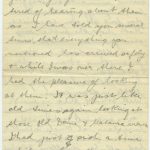 tired of hearing about them
as I had told you several
times that everything you
mentioned has arrived safely
& while I was over there I
had the pleasure of looking
at them. It was just like
old times again looking at
those old
I had just such a time